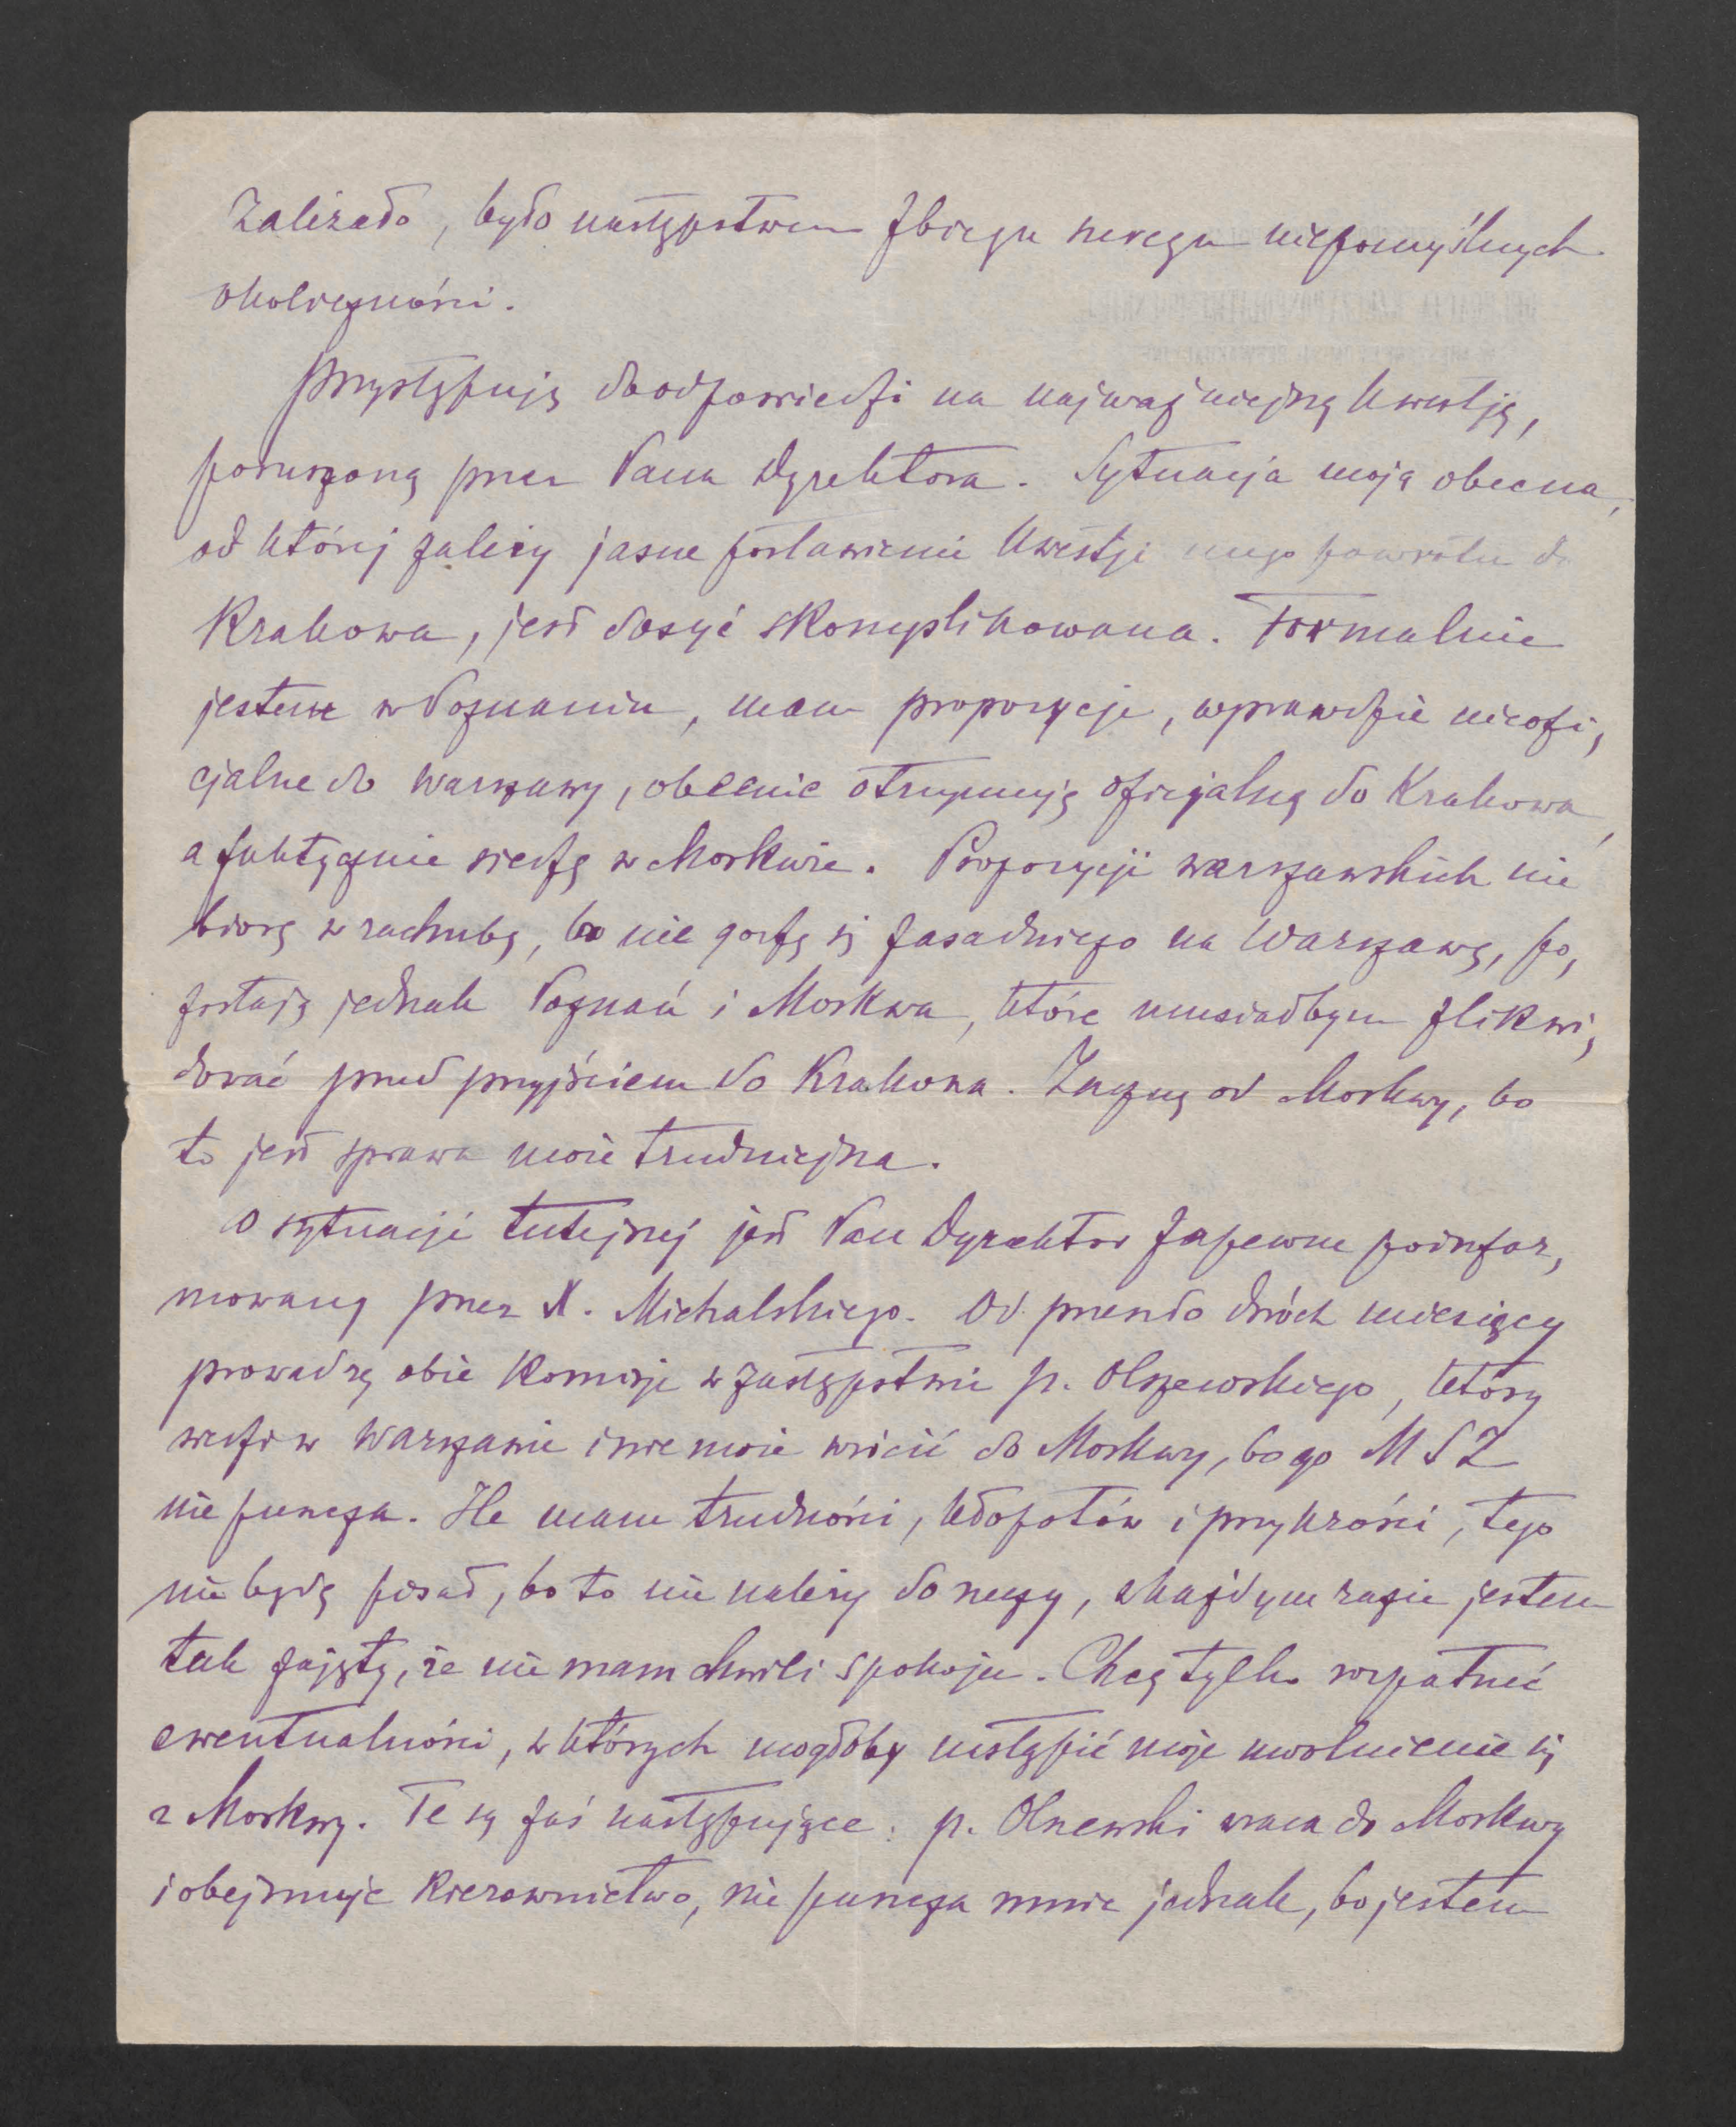 zależało, było następstwem zbiegu szeregu niepomyślnych
okoliczności.
Przystępuję do odpowiedzi na najważniejszą kwestję,
poruszoną przez Pana Dyrektora. Sytuacja moja obecna,
od której zależy jasne postawienie kwestji mego powrotu do
Krakowa, jest dosyć skomplikowana. Formalnie
jestem w Poznaniu, mam propozycje, wprawdzie nieofi,
cjalne do Warszawy, obecnie otrzymuję oficjalną do Krakowa,
a faktycznie siedzę w Moskwie. Propozycji warszawskich nie
biorę w rachubę, bo nie godzę się zasadniczo na Warszawę, po,
zostają jednak Poznań i Moskwa, które musiałbym zlikwi,
dować przed przyjściem do Krakowa. Zacznę od Moskwy, bo
to jest sprawa może trudniejsza.
O sytuacji tutejszej jest Pan Dyrektor zapewne poinfor,
mowany przez X. Michalskiego. Od przeszło dwóch miesięcy
prowadzę obie Komisje w zastępstwie p. Olszewskiego, który
siedzi w Warszawie i nie może wrócić do Moskwy, bo go MSZ
nie puszcza. Ile mam trudności, kłopotów i przykrości, tego
nie będę pisał, bo to nie należy do rzeczy, w każdym razie jestem
tak zajęty, że nie mam chwili spokoju. Chcę tylko rozpatrzeć
ewentualności, w których mogłoby nastąpić moje uwolnienie się
z Moskwy. Te są zaś następujące: p. Olszewski wraca do Moskwy
i obejmuje kierownictwo, nie puszcza mnie jednak, bo jestem